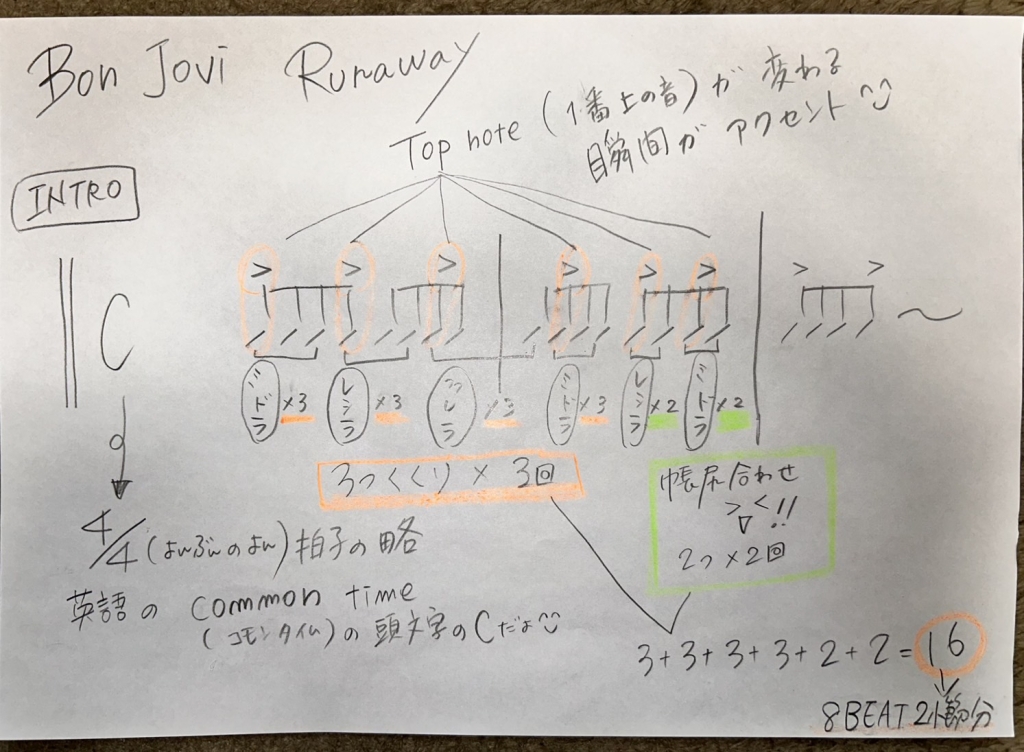 Bon Jovi Runaway
Top note (1番上の音)が 変わる
瞬間が アクセント
INTRO
> > > > > > > >
C
ミドラ ×3 レシラ ×3 ×3 ミドラ ×3 レシラ ×2 ミドラ ×2
3つくくり × 3回
帳尻合わせ
><!!
2つ×2回
4/4(よんぶんのよん)拍子の略
英語の common time
(コモンタイム)の頭文字のCだよ
3+3+3+3+2+2=16
8BEAT2小節分